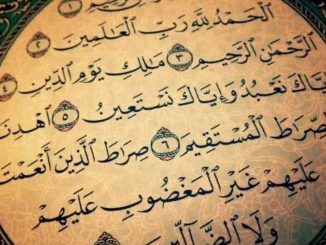 ١
ٱلْحَمْدُ لِلَّهِ رَبِّ ٱلْعَٰلَمِينَ ٢
ٱلرَّحْمَٰنِ ٱلرَّحِيمِ ٣ مَٰلِكِ يَوْمِ ٱلدِّينِ ٤
إِيَّاكَ نَعْبُدُ وَإِيَّاكَ نَسْتَعِينُ ٥ ٱهْدِنَا
ٱلصِّرَٰطَ ٱلْمُسْتَقِيمَ ٦ صِرَٰطَ ٱلَّذِينَ أَنْعَمْتَ
عَلَيْهِمْ غَيْرِ ٱلْمَغْضُوبِ عَلَيْهِمْ
وَلَا ٱلضَّآلِّينَ